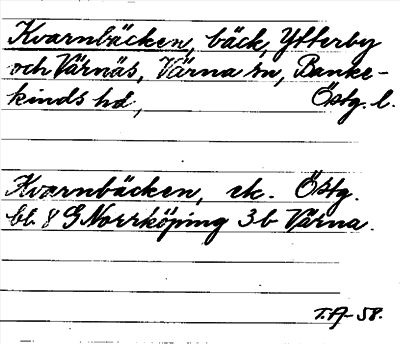 Kvarnbäcken, bäck, Ytterby
och Värnäs, Värna sn, Banke-
kinds hd, Östg. l.
Kvarnbäcken, ek. Östg.
bl. 8 G Norrköping 3 b Värna.
T.A-58.